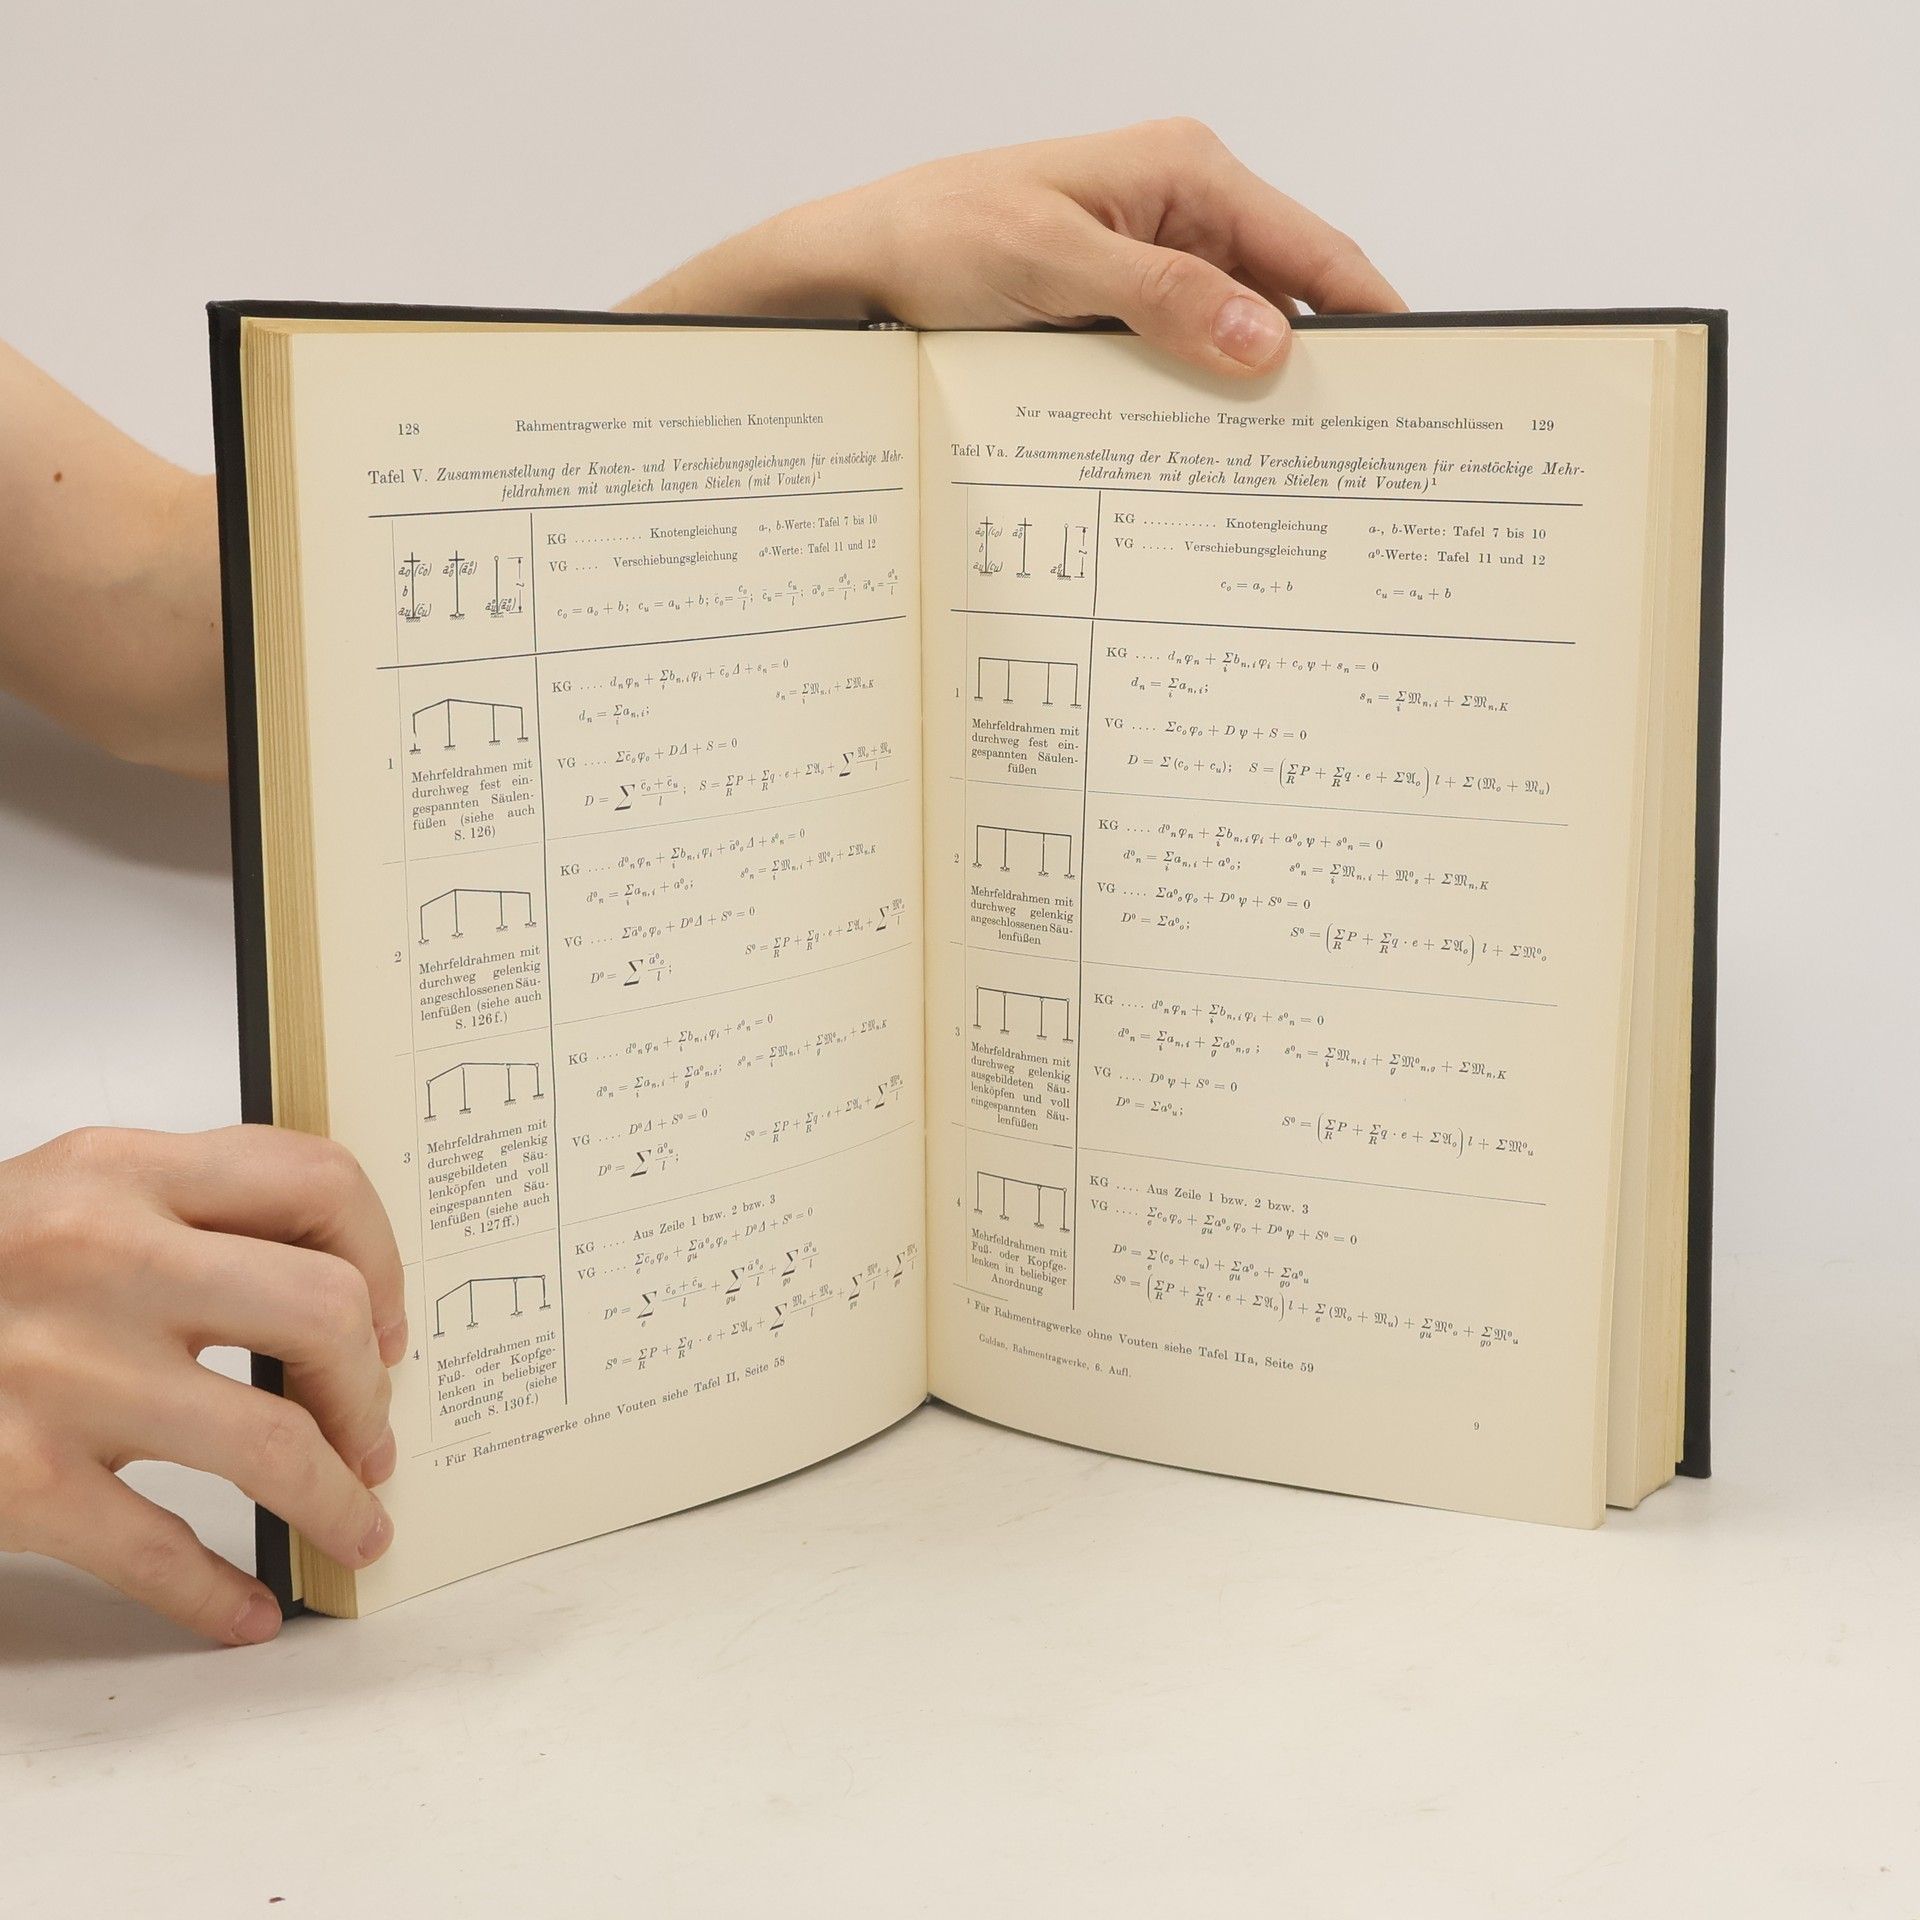 128 Rahmentragwerke mit verschieblichen Knotenpunkten
Tafel V. Zusammenstellung der Knoten- und Verschiebungsgleichungen für einstöckige Mehr-
feldrahmen mit ungleich langen Stielen (mit Vouten)¹
KG ........... Knotengleichung a-, b-Werte: Tafel 7 bis 10
VG .... Verschiebungsgleichung a⁰-Werte: Tafel 11 und 12
c_o = a_o + b; c_u = a_u + b; c̄_o = c_o/l; c̄_u = c_u/l; ā⁰_o = a⁰_o/l; ā⁰_u = a⁰_u/l
1
Mehrfeldrahmen mit
durchweg fest ein-
gespannten Säulen-
füßen (siehe auch
S. 126)
KG .... d_n φ_n + Σ_i b_{n,i} φ_i + c̄_o Δ + s_n = 0
d_n = Σ_i a_{n,i}; s_n = Σ_i 𝔐_{n,i} + Σ𝔐_{n,K}
VG .... Σc̄_o φ_o + DΔ + S = 0
D = Σ (c̄_o + c̄_u)/l; S = Σ_R P + Σ_R q · e + Σ𝔄_o + Σ (𝔐_o + 𝔐_u)/l
2
Mehrfeldrahmen mit
durchweg gelenkig
angeschlossenen Säu-
lenfüßen (siehe auch
S. 126f.)
KG .... d⁰_n φ_n + Σ_i b_{n,i} φ_i + ā⁰_o Δ + s⁰_n = 0
d⁰_n = Σ_i a_{n,i} + a⁰_o; s⁰_n = Σ_i 𝔐_{n,i} + 𝔐⁰_s + Σ𝔐_{n,K}
VG .... Σā⁰_o φ_o + D⁰Δ + S⁰ = 0
D⁰ = Σ ā⁰_o/l; S⁰ = Σ_R P + Σ_R q · e + Σ𝔄_o + Σ 𝔐⁰_o/l
3
Mehrfeldrahmen mit
durchweg gelenkig
ausgebildeten Säu-
lenköpfen und voll
eingespannten Säu-
lenfüßen (siehe auch
S. 127ff.)
KG .... d⁰_n φ_n + Σ_i b_{n,i} φ_i + s⁰_n = 0
d⁰_n = Σ_i a_{n,i} + Σ_g a⁰_{n,g}; s⁰_n = Σ_i 𝔐_{n,i} + Σ_g 𝔐⁰_{n,g} + Σ𝔐_{n,K}
VG .... D⁰Δ + S⁰ = 0
D⁰ = Σ ā⁰_u/l; S⁰ = Σ_R P + Σ_R q · e + Σ𝔄_o + Σ 𝔐⁰_u/l
4
Mehrfeldrahmen mit
Fuß- oder Kopfge-
lenken in beliebiger
Anordnung (siehe
auch S. 130f.)
KG .... Aus Zeile 1 bzw. 2 bzw. 3
VG .... Σ_e c̄_o φ_o + Σ_gu ā⁰_o φ_o + D⁰Δ + S⁰ = 0
D⁰ = Σ_e (c̄_o + c̄_u)/l + Σ_gu ā⁰_o/l + Σ_go ā⁰_u/l
S⁰ = Σ_R P + Σ_R q · e + Σ𝔄_o + Σ_e (𝔐_o + 𝔐_u)/l + Σ_gu 𝔐⁰_o/l + Σ_go
¹ Für Rahmentragwerke ohne Vouten siehe Tafel II, Seite 58
Nur waagrecht verschiebliche Tragwerke mit gelenkigen Stabanschlüssen 129
Tafel Va. Zusammenstellung der Knoten- und Verschiebungsgleichungen für einstöckige Mehr-
feldrahmen mit gleich langen Stielen (mit Vouten)¹
KG ........... Knotengleichung a-, b-Werte: Tafel 7 bis 10
VG ..... Verschiebungsgleichung a⁰-Werte: Tafel 11 und 12
c_o = a_o + b c_u = a_u + b
1
Mehrfeldrahmen mit
durchweg fest ein-
gespannten Säulen-
füßen
KG .... d_n φ_n + Σ_i b_{n,i} φ_i + c_o ψ + s_n = 0
d_n = Σ_i a_{n,i}; s_n = Σ_i 𝔐_{n,i} + Σ𝔐_{n,K}
VG .... Σc_o φ_o + D ψ + S = 0
D = Σ (c_o + c_u); S = (Σ_R P + Σ_R q · e + Σ𝔄_o) l + Σ (𝔐_o + 𝔐_u)
2
Mehrfeldrahmen mit
durchweg gelenkig
angeschlossenen Säu-
lenfüßen
KG .... d⁰_n φ_n + Σ_i b_{n,i} φ_i + a⁰_o ψ + s⁰_n = 0
d⁰_n = Σ_i a_{n,i} + a⁰_o; s⁰_n = Σ_i 𝔐_{n,i} + 𝔐⁰_s + Σ𝔐_{n,K}
VG .... Σa⁰_o φ_o + D⁰ ψ + S⁰ = 0
D⁰ = Σa⁰_o; S⁰ = (Σ_R P + Σ_R q · e + Σ𝔄_o) l + Σ𝔐⁰_o
3
Mehrfeldrahmen mit
durchweg gelenkig
ausgebildeten Säu-
lenköpfen und voll
eingespannten Säu-
lenfüßen
KG .... d⁰_n φ_n + Σ_i b_{n,i} φ_i + s⁰_n = 0
d⁰_n = Σ_i a_{n,i} + Σ_g a⁰_{n,g}; s⁰_n = Σ_i 𝔐_{n,i} + Σ_g 𝔐⁰_{n,g} + Σ𝔐_{n,K}
VG .... D⁰ ψ + S⁰ = 0
D⁰ = Σa⁰_u; S⁰ = (Σ_R P + Σ_R q · e + Σ𝔄_o) l + Σ𝔐⁰_u
4
Mehrfeldrahmen mit
Fuß- oder Kopfge-
lenken in beliebiger
Anordnung
KG .... Aus Zeile 1 bzw. 2 bzw. 3
VG .... Σ_e c_o φ_o + Σ_gu a⁰_o φ_o + D⁰ ψ + S⁰ = 0
D⁰ = Σ_e (c_o + c_u) + Σ_gu a⁰_o + Σ_go a⁰_u
S⁰ = (Σ_R P + Σ_R q · e + Σ𝔄_o) l + Σ_e (𝔐_o + 𝔐_u) + Σ_gu 𝔐⁰_o + Σ_go 𝔐⁰_u
¹ Für Rahmentragwerke ohne Vouten siehe Tafel IIa, Seite 59
Guldan, Rahmentragwerke, 6. Aufl.
9